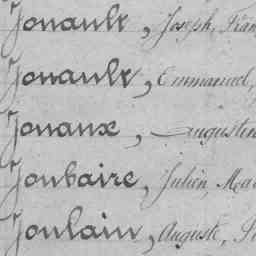 Jouault, Joseph, Fran
Jouault, Emmanuel,
Jouaux, Augustin
Joubaire, Julien, Ma
Joulain, Auguste,